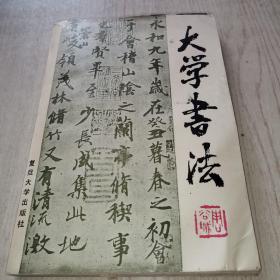 大学書法
永和九年歲在癸丑暮春之初會
于會稽山陰之蘭亭脩稧事
也羣賢畢至少長咸集此地
領茂林脩竹又有清流激
复旦大学出版社